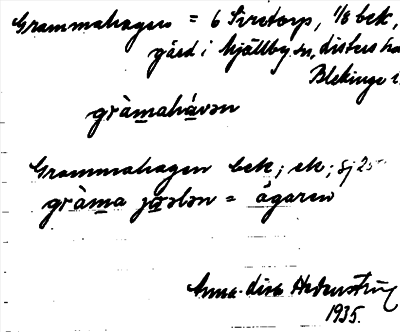 Grammahagen = 6 Siretorp, 1/8 bek,
gård i Mjällby sn, Listers hd
Blekinge
gràmahávən
Grammahagen bek; ek; sj 25
gràma jøələn = ägaren
Anna-Lisa Hedenström
1935.